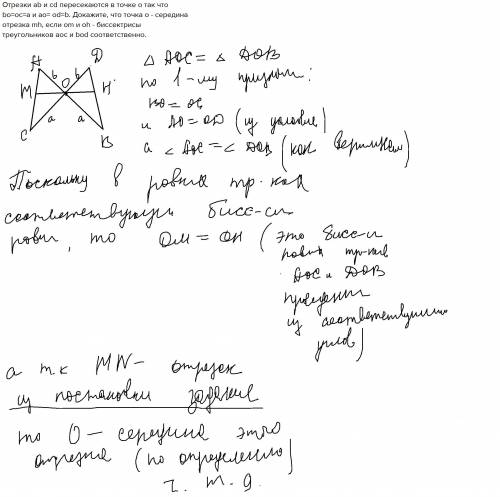 Отрезки ab и cd пересекаются в точке о так что
bo=oc=a и ao= od=b. Докажите, что точка о - середина
отрезка mh, если om и oh - биссектрисы
треугольников aoc и bod соответственно.
A D
b b
M O H
a a
C B
△ AOC = △ DOB
по 1-му призн
BO = OC
и AO = OD (из условия)
а ∠ AOC = ∠ DOB (как вертикал)
Поскольку в равных тр-ках
соответствующие бисс-сы
равны, то OM = OH (это бисс-сы
равных тр-ков
AOC и DOB
проведены
из соответствующих
углов)
а т к MN - отрезок
из постановки задания
то O - середина этого
отрезка (по определению)
ч. т. д.